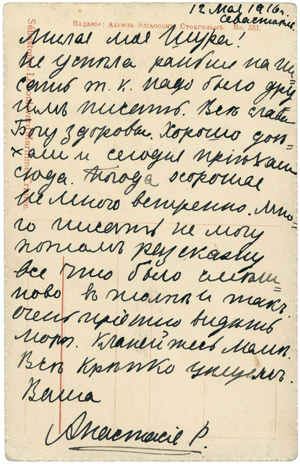 12 Мая 1916 г.
Севастополь.
Изданіе: Аксель Эліассонъ Стокгольмъ. No. 351.
Милая моя Шура!
Не успѣла раньше на пи=
сать т. к. надо было дру
гимъ писать. Всѣ слава
Богу здоровы. Хорошо доѣ=
хали и сегодня пріѣхали
сюда. Погода хорошая
не много ветренно. Мно=
го писать не могу
потомъ разскажу
все что было
въ и такъ
очень пріятно видать
море. Кланяйтесь Мамѣ.
Всѣ Крѣпко цѣлуемъ.
Ваша
Анастасія Р.